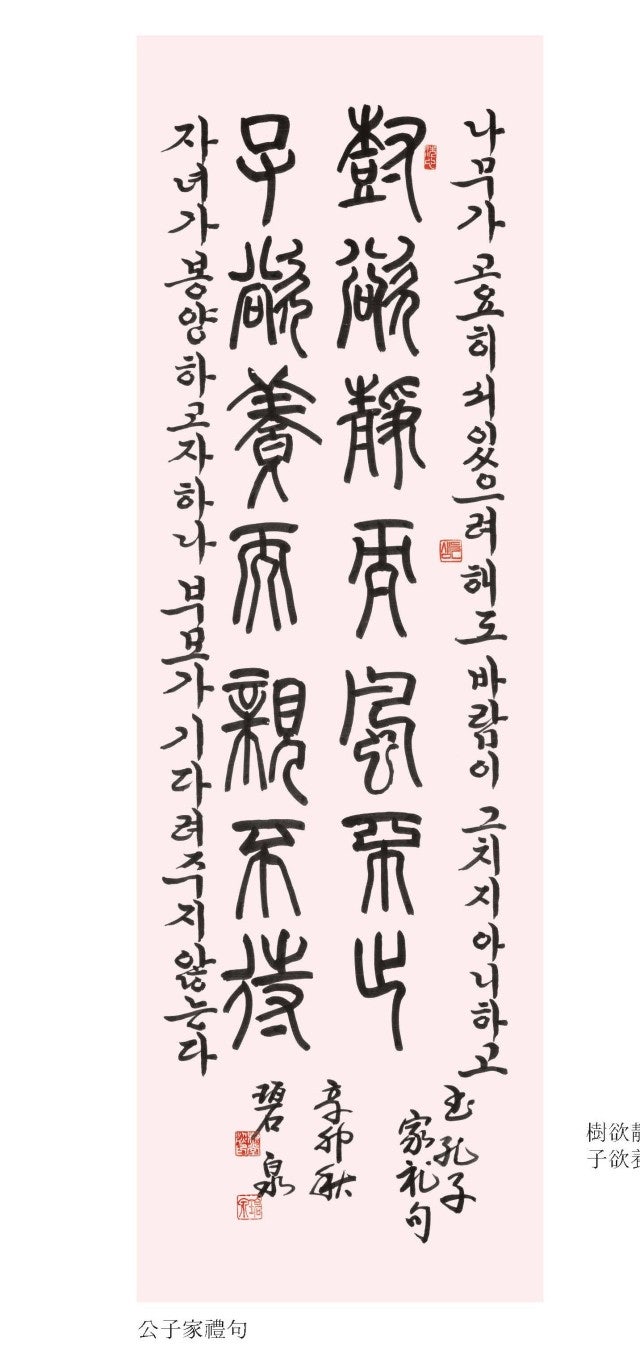 나무가 고요히 쇠있으려 해도 바람이 그치지 아니하고
樹欲靜而風不止
子欲養而親不待
자녀가 봉양하고자 하나 부모가 기다려주지 않는다
孔子
家礼句
辛卯秋
碧泉
樹欲
子欲
公子家禮句